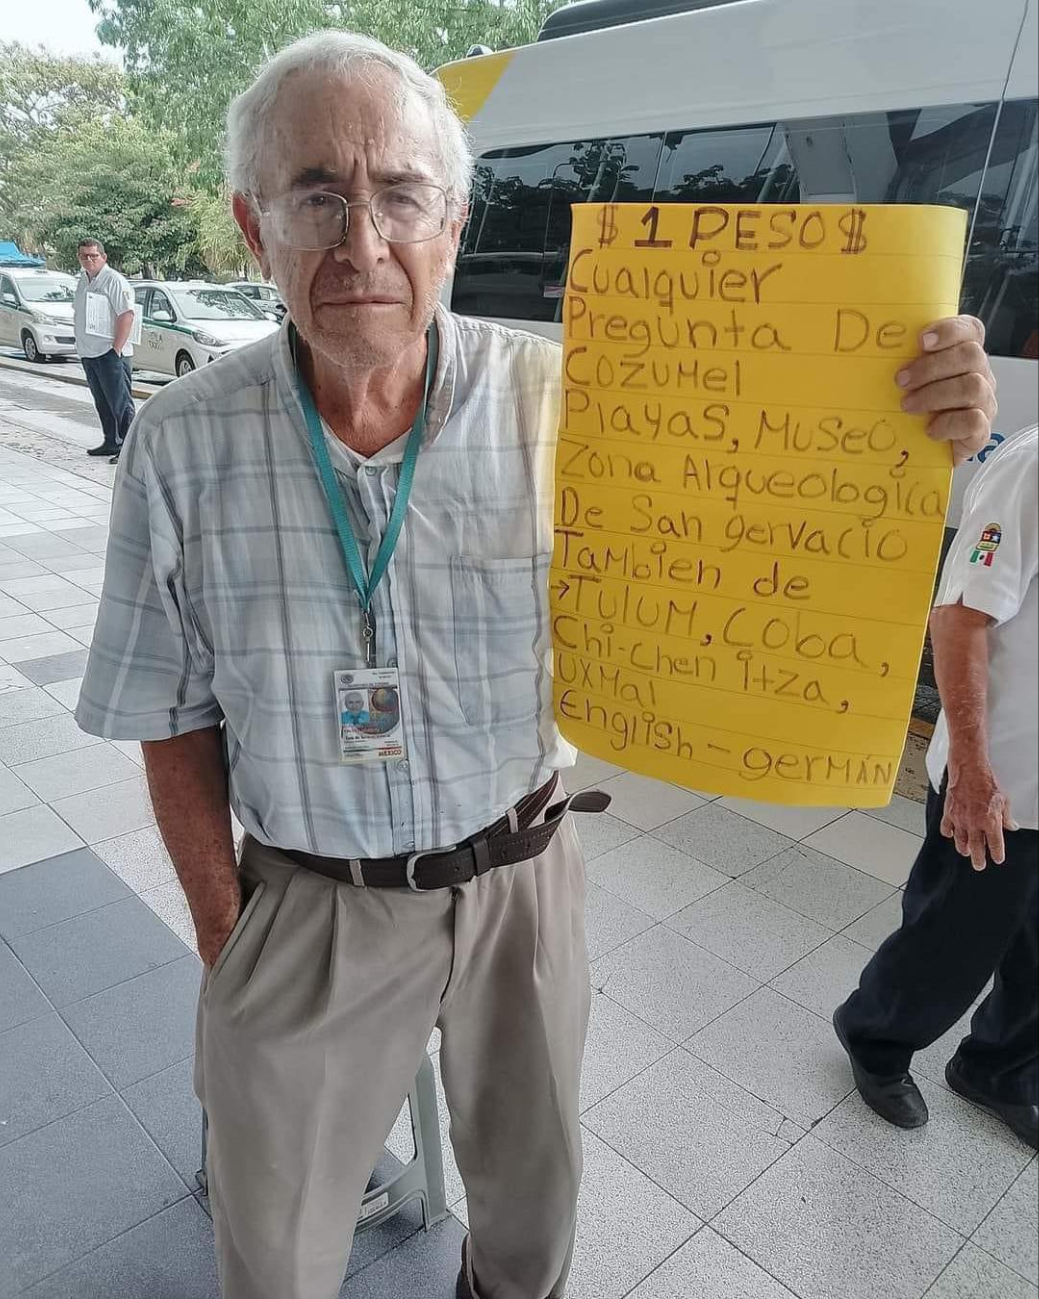 $ 1 PESO $
Cualquier
Pregunta De
Cozumel
Playas, Museo,
Zona Alqueologica
De San gervacio
Tambien de
→Tulum, Coba,
Chi-chen itza,
UXMal
English - germán
MÉXICO